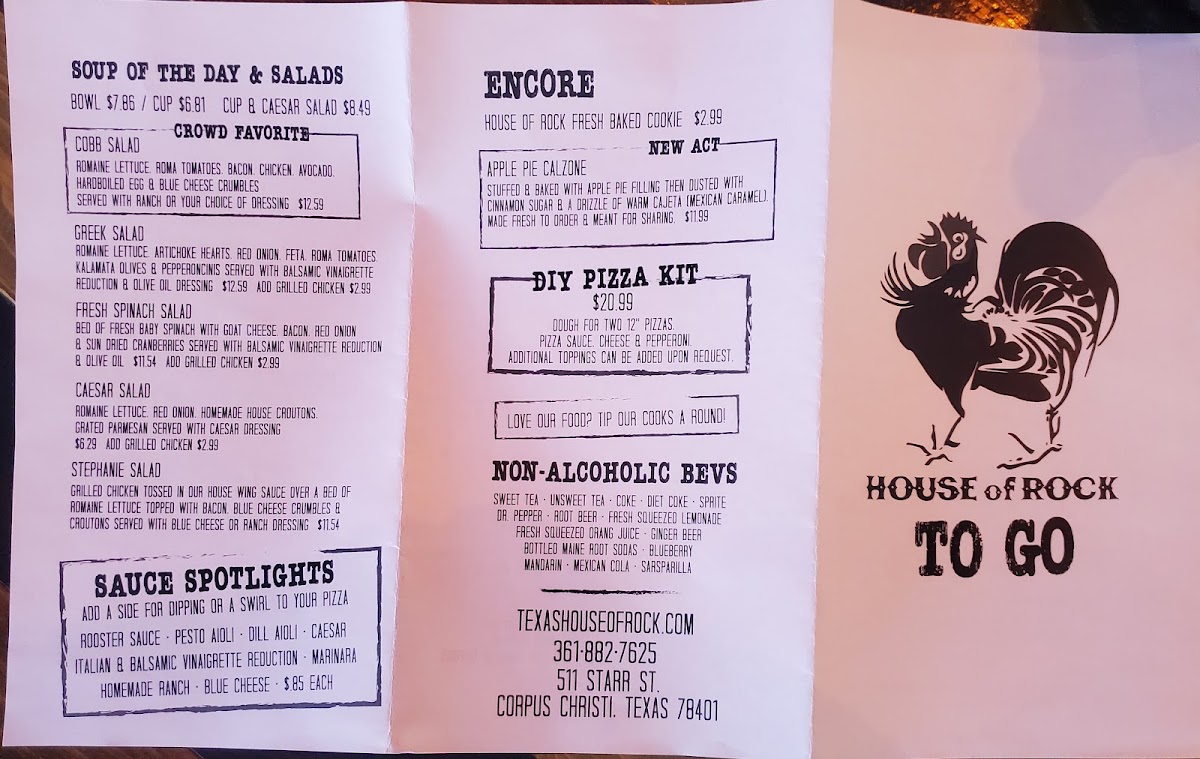 SOUP OF THE DAY & SALADS
BOWL $7.86 / CUP $6.81 CUP & CAESAR SALAD $8.49
CROWD FAVORITE
COBB SALAD
ROMAINE LETTUCE, ROMA TOMATOES, BACON, CHICKEN, AVOCADO,
HARDBOILED EGG & BLUE CHEESE CRUMBLES
SERVED WITH RANCH OR YOUR CHOICE OF DRESSING $12.59
GREEK SALAD
ROMAINE LETTUCE, ARTICHOKE HEARTS, RED ONION, FETA, ROMA TOMATOES,
KALAMATA OLIVES & PEPPERONCINIS SERVED WITH BALSAMIC VINAIGRETTE
REDUCTION & OLIVE OIL DRESSING $12.59 ADD GRILLED CHICKEN $2.99
FRESH SPINACH SALAD
BED OF FRESH BABY SPINACH WITH GOAT CHEESE, BACON, RED ONION
& SUN DRIED CRANBERRIES SERVED WITH BALSAMIC VINAIGRETTE REDUCTION
& OLIVE OIL $11.54 ADD GRILLED CHICKEN $2.99
CAESAR SALAD
ROMAINE LETTUCE, RED ONION, HOMEMADE HOUSE CROUTONS,
GRATED PARMESAN SERVED WITH CAESAR DRESSING
$6.29 ADD GRILLED CHICKEN $2.99
STEPHANIE SALAD
GRILLED CHICKEN TOSSED IN OUR HOUSE WING SAUCE OVER A BED OF
ROMAINE LETTUCE TOPPED WITH BACON, BLUE CHEESE CRUMBLES &
CROUTONS SERVED WITH BLUE CHEESE OR RANCH DRESSING $11.54
SAUCE SPOTLIGHTS
ADD A SIDE FOR DIPPING OR A SWIRL TO YOUR PIZZA
ROOSTER SAUCE · PESTO AIOLI · DILL AIOLI · CAESAR
ITALIAN & BALSAMIC VINAIGRETTE REDUCTION · MARINARA
HOMEMADE RANCH · BLUE CHEESE · $.85 EACH
ENCORE
HOUSE OF ROCK FRESH BAKED COOKIE $2.99
NEW ACT
APPLE PIE CALZONE
STUFFED & BAKED WITH APPLE PIE FILLING THEN DUSTED WITH
CINNAMON SUGAR & A DRIZZLE OF WARM CAJETA (MEXICAN CARAMEL).
MADE FRESH TO ORDER & MEANT FOR SHARING. $11.99
DIY PIZZA KIT
$20.99
DOUGH FOR TWO 12" PIZZAS,
PIZZA SAUCE, CHEESE & PEPPERONI.
ADDITIONAL TOPPINGS CAN BE ADDED UPON REQUEST.
LOVE OUR FOOD? TIP OUR COOKS A ROUND!
NON-ALCOHOLIC BEVS
SWEET TEA · UNSWEET TEA · COKE · DIET COKE · SPRITE
DR. PEPPER · ROOT BEER · FRESH SQUEEZED LEMONADE
FRESH SQUEEZED ORANG JUICE · GINGER BEER
BOTTLED MAINE ROOT SODAS · BLUEBERRY
MANDARIN · MEXICAN COLA · SARSPARILLA
TEXASHOUSEOFROCK.COM
361·882·7625
511 STARR ST.
CORPUS CHRISTI, TEXAS 78401
HOUSE of ROCK
TO GO